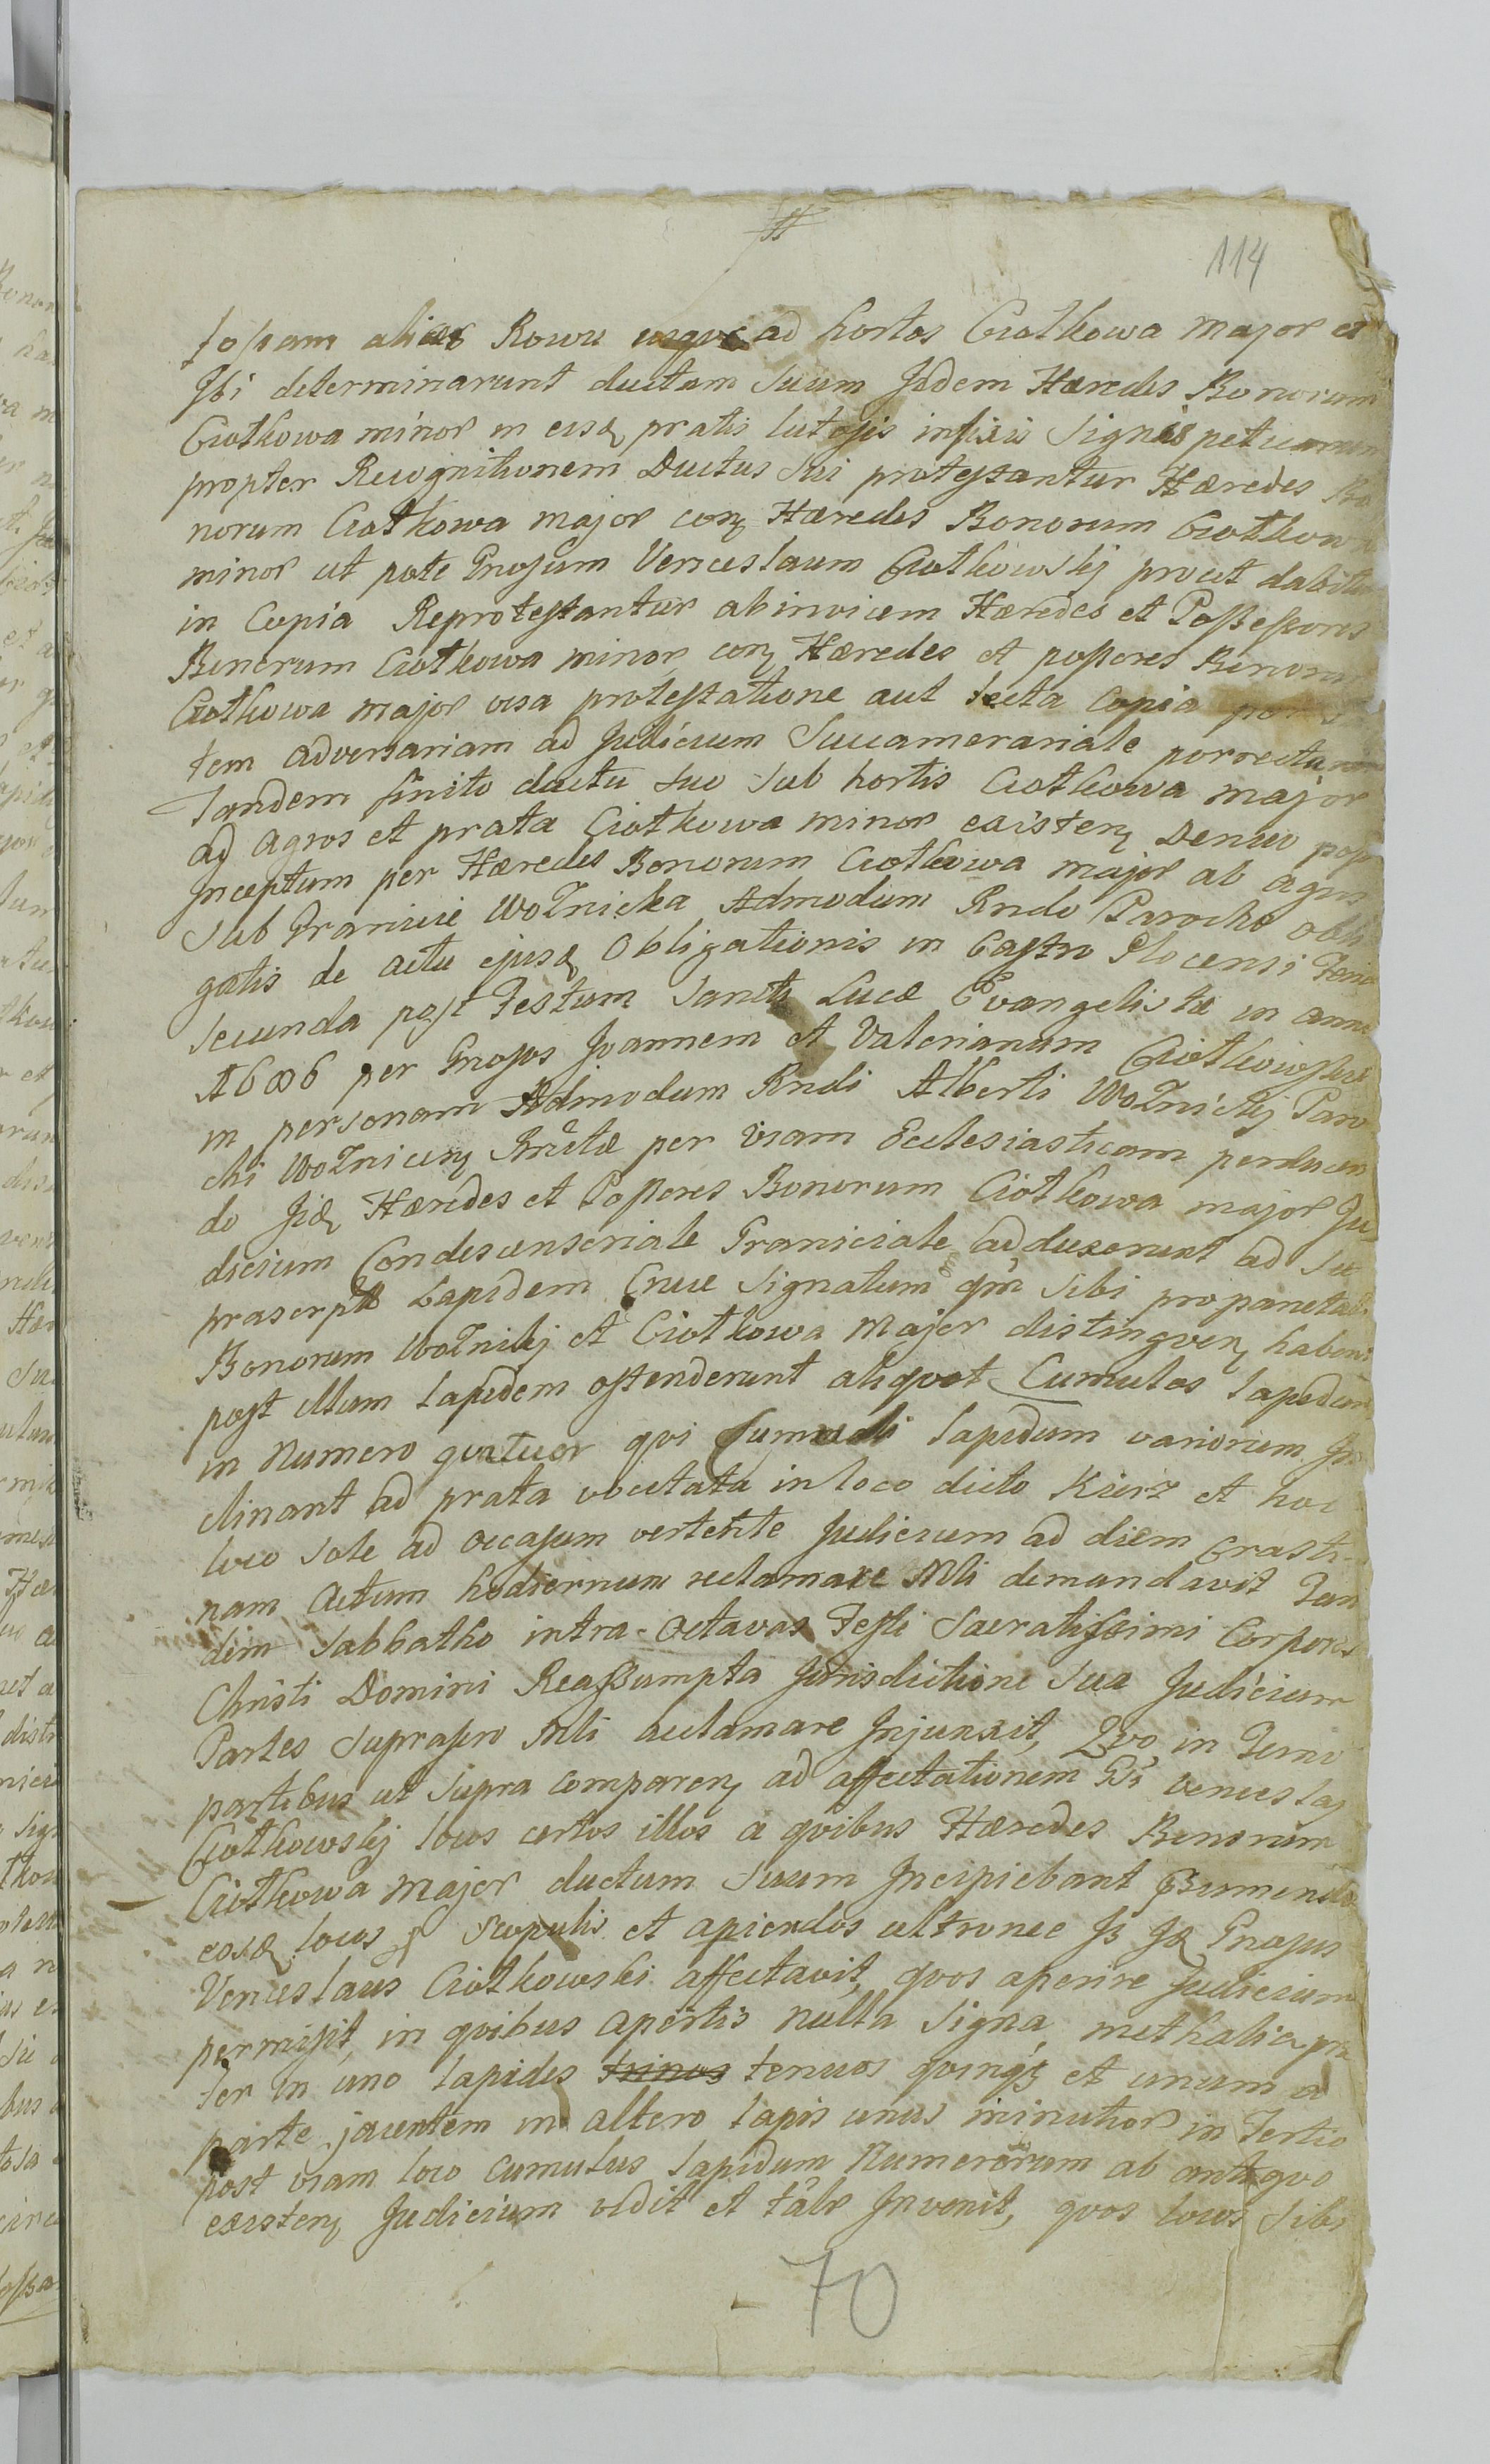 114
fossam alias Rowu usqve ad hortos Ciotkowa major et
Ibi determinarunt ductum suum Jidem Hæredes Bonorum
Ciotkowa minor in eisq pratis lutosis infixis Signis
propter Recognitionem Ductus sui protestantur Hæredes Bo
norum Ciotkowa major conz Hæredes Bonorum Ciotkowa
minor ut pote Gnosum Venceslaum Ciotkowskij prout dabitur
in Copia Reprotestantur abinvicem Hæredes et Possessores
Bonorum Ciotkowa minor conz Hæredes et possores Bonorum
Ciotkowa major visa protestatione aut lecta Copia per
tem adversariam ad Judicium Succamerariale porrectam
Tandem finito ductu suo sub hortis Ciotkowa major
ad agros et prata Ciotkowa minor existenz Denuo
Inceptum per Hæredes Bonorum Ciotkowa major ab agris
sub Granicie Woznicka Admodum Rndo Parocho obli
gatis de actu ejusq Obligationis in Castro Plocensi Feria
secunda post Festum Sancti Lucæ Evangelistæ in anno
1606 per Gnosos Joannem et Valerianum Ciotkowskie
in personam Admodum Rndi Alberti Woznickij Paro
chi Woznicenz per viam Ecclesiasticam perducen
do Jidq Hæredes et Possores Bonorum Ciotkowa major Ju
dicium Condescensoriale Graniciale adduxerunt ad su
prascrptu Lapidem Cruce signatum qm sibi pro
Bonorum Woznikij et Ciotkowa Major distingvenz habent
post illum lapidem ostenderunt aliqvot Cumulos lapidum
in numero qvatuor qvi Cumuli lapidum variorum In
clinant ad prata vocitata in loco dicto Kierz et hoc
loco sole ad occasum vertente Judicium ad diem Crasti-
nam actum hodiernum reclamare Mli demandavit Tan
dem Sabbatho intra octavas Festi Sacratissimi Corporis
Christi Domini Reassumpta Jurisdictione sua Judicium
Partes suprascro Mli acclamare Injunxit, Qvo in Termi
partibus ut supra comparenz ad affectationem Gsi Venceslaj
Ciotkowskij locos certos illos a qvibus Hæredes Bonorum
Ciotkowa major ductum suum Incipiebant
eosq locos scopulis et apiendos ultronee Is Jq Gnosus
Venceslaus Ciotkowski affectavit, qvos aperire Judicium
permisit, in qvibus apertis nulla signa methalica præ
ter in uno lapides trinos tenuos qvinqz et unum a
parte jacentem in altero lapis unus minutior in Tertio
post viam loco cumulus lapidum Numerorum ab antiqvo
existenz Judicium vidit et tale Invenit, qvos locos sibi
70